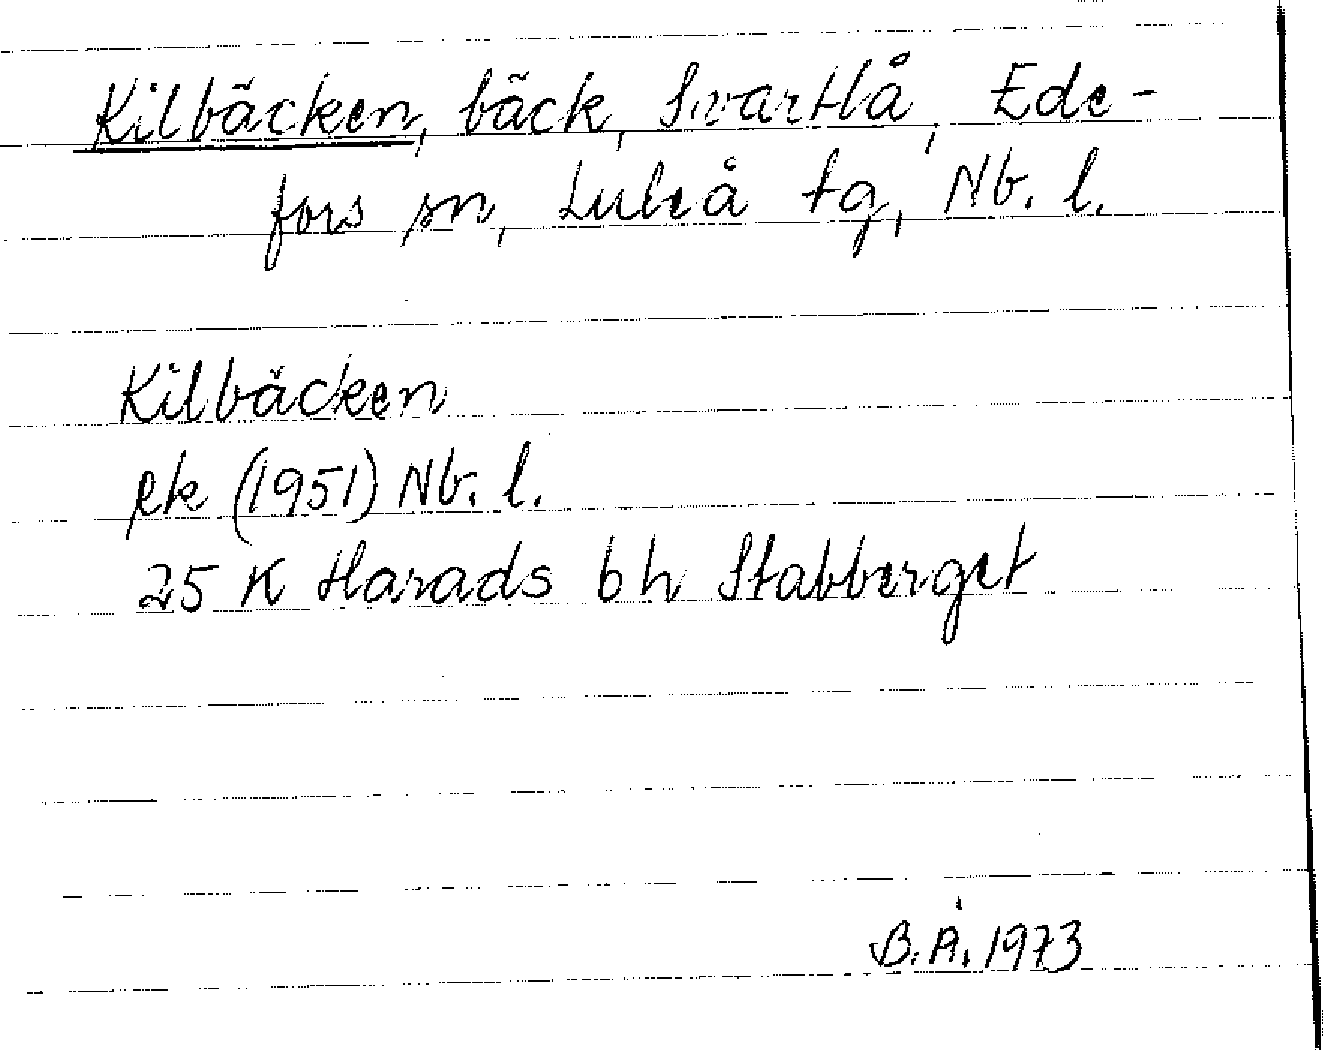 Kilbäcken, bäck, Svartlå, Ede-
fors sn, Luleå tg, Nb. l.
Kilbäcken
rk (1951) Nb. l.
25 K Harads bh Stabberget
B.Å. 1973